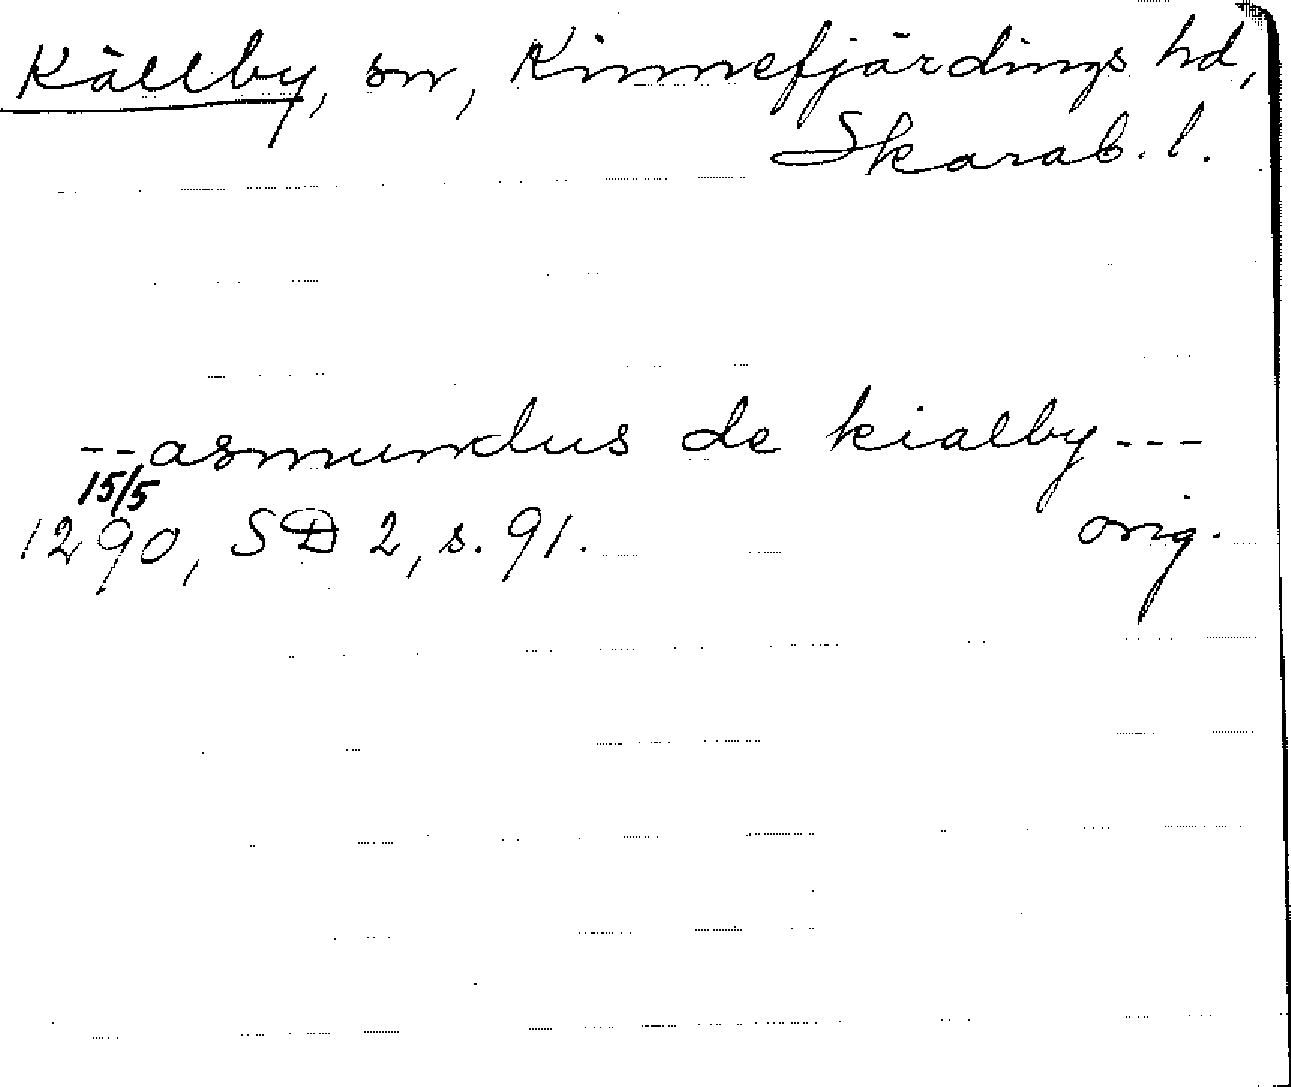 Källby, sn, Kinnefjärdings hd,
Skarab. l.
-- asmundus de kialby ---
15/5
1290, SD 2, s. 91. orig.